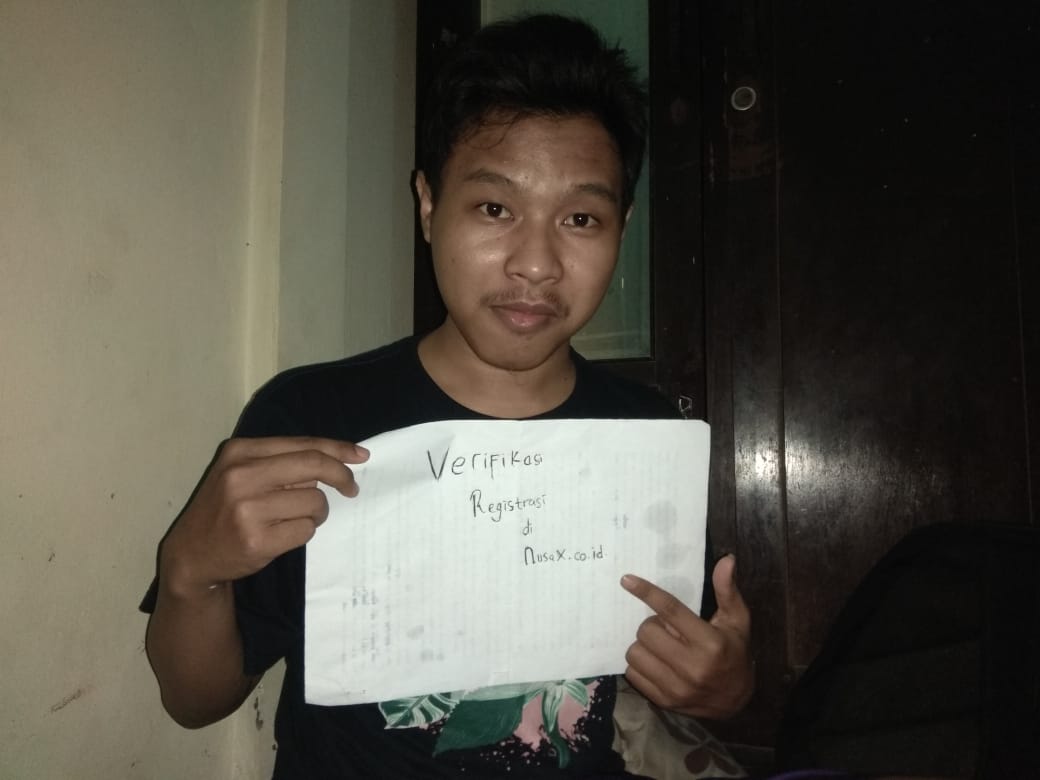 Verifikasi
Registrasi
di
Nusax.co.id.